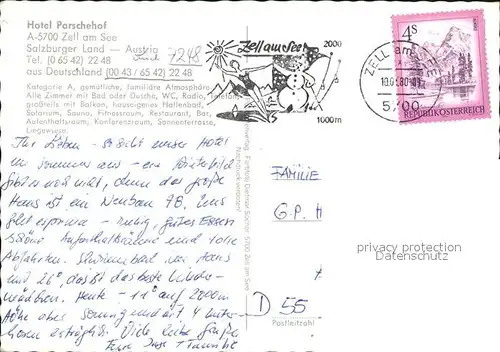 Hotel Parschehof
A-5700 Zell am See
Salzburger Land — Austria
Tel. (0 65 42) 22 48
und 7248
aus Deutschland (00 43 / 65 42) 22 48
Kategorie A, gemütliche, familiäre Atmosphäre.
Alle Zimmer mit Bad oder Dusche, WC, Radio, Telefon,
großteils mit Balkon, hauseigenes Hallenbad,
Solarium, Sauna, Fitnessraum, Restaurant, Bar,
Aufenthaltsraum, Konferenzraum, Sonnenterrasse,
Liegewiese.
Zell am See
2000
1000m
ZELL am SEE
10.03.80
5700
4S
REPUBLIK ÖSTERREICH
Ihr Lieben - so sieht unser Hotel
im Sommer aus - ein Winterbild
gibt es noch nicht, denn das große
Haus ist ein Neubau 78. Uns
geht es prima - ruhig, gutes Essen
schöne Aufenthaltsräume und tolle
Abfahrten. Schwimmbad im Haus
mit 26°, das ist das beste
Heute - 11° auf 2000 m
Höhe aber Sonne und mit 4
Hosen erträglich. Viele liebe Grüße
Eure Inge + Familie
5700 Zell am See
FAMILIE
G.P. H
D 55
Postleitzahl
privacy protection
Datenschutz